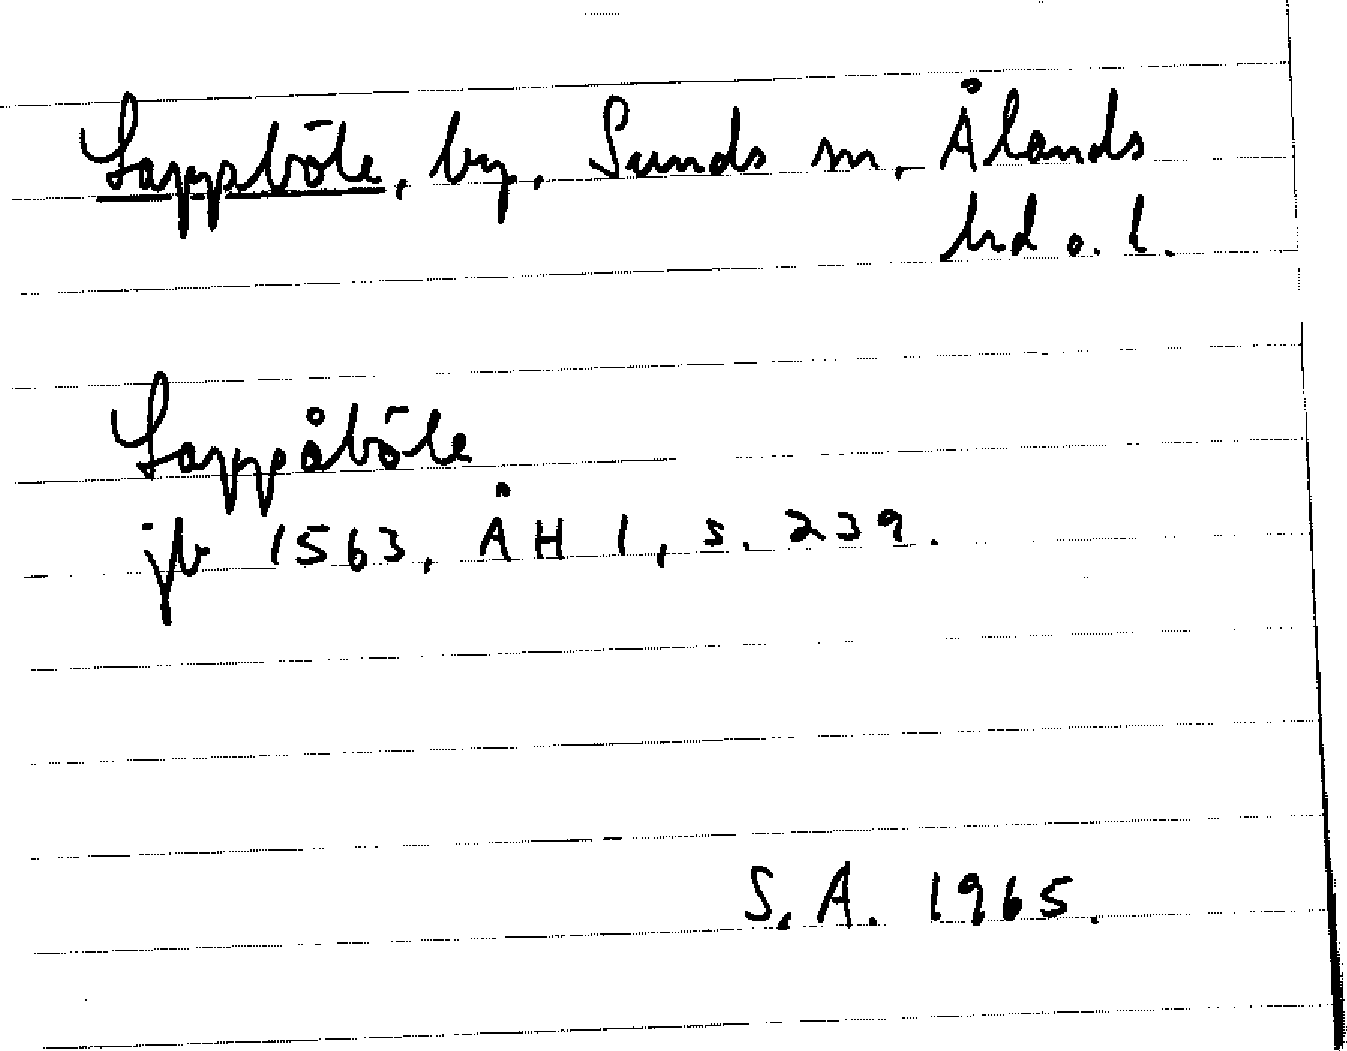 Lappböle, by, Sunds sn, Ålands
hd o. l.
Lappåböle
jb 1563, ÅH 1, s. 239.
S.A. 1965.